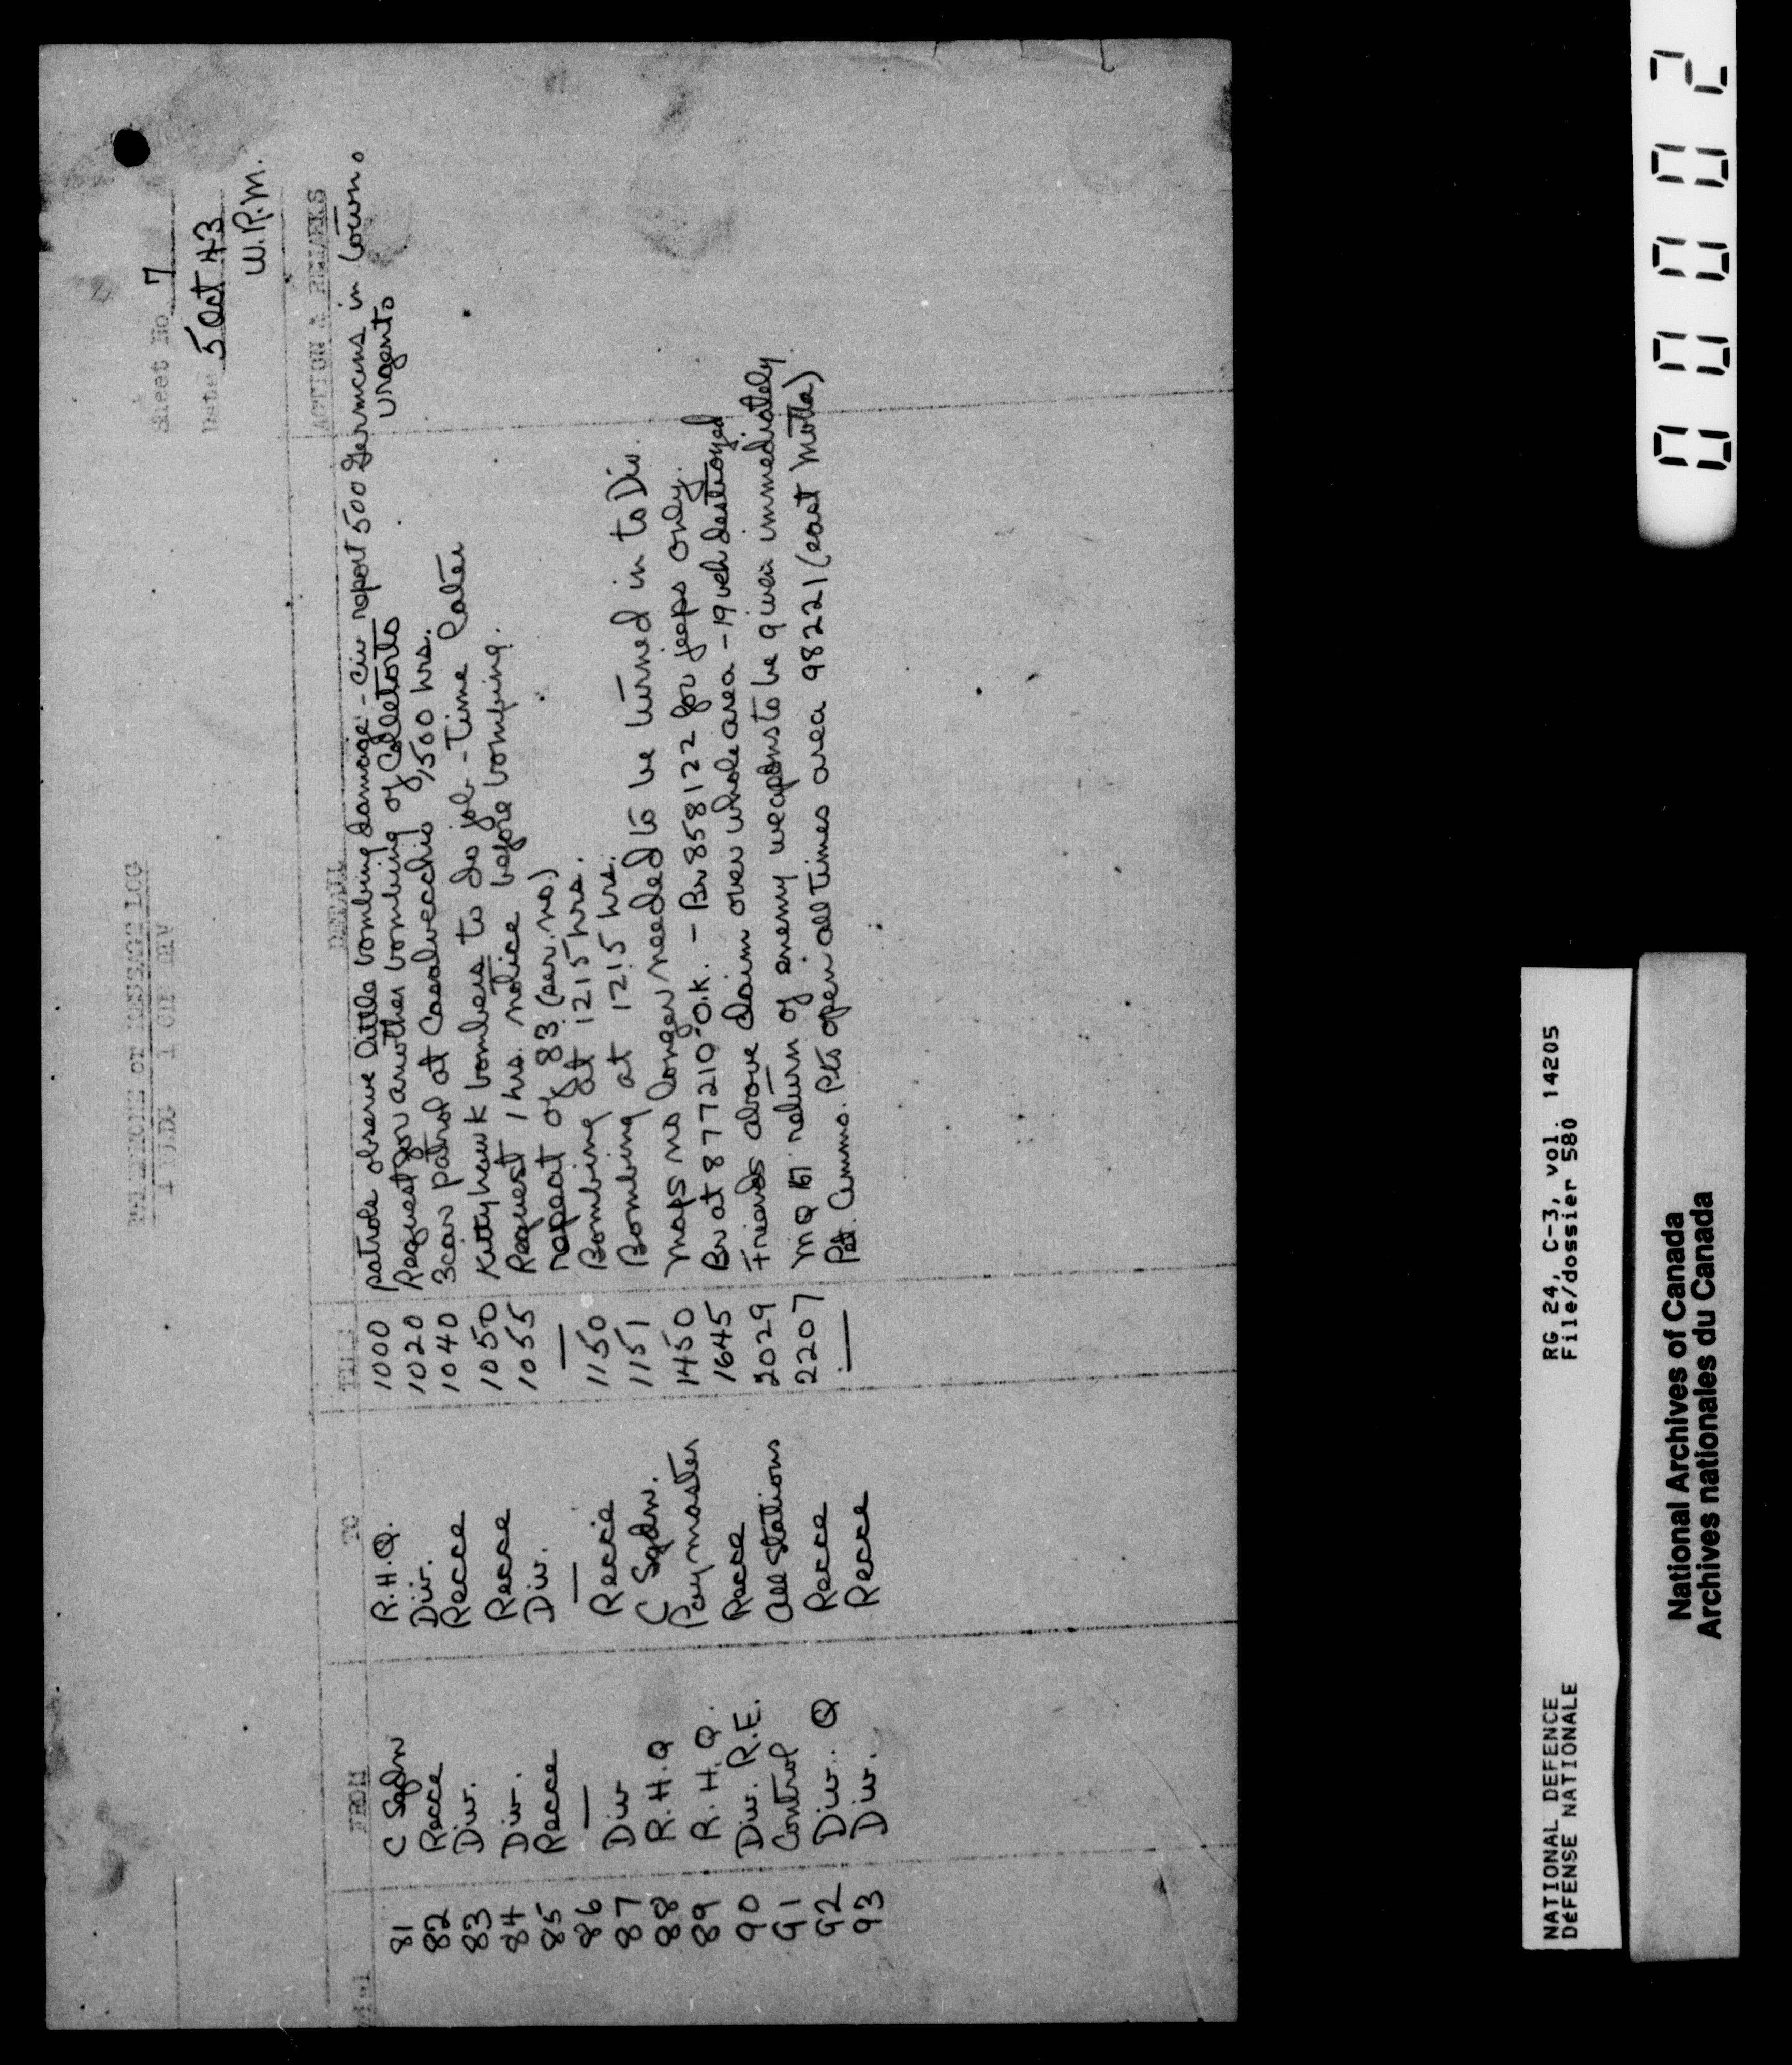 Sheet No 7
Date 5 Oct 43
W.P.M.
TELEPHONE OR MESSAGE LOG
4 CDN DIV
FROM TO TIME DETAIL ACTION & REMARKS
81 C Sqdn R.H.Q. 1000 patrols observe little bombing damage - civ report 500 Germans in town.
82 Recce Div. 1020 Request for another bombing of Colletorto urgent.
83 Div. Recce 1040 3 car patrol at Casalvecchio 1500 hrs.
84 Div. Recce 1050 Kittyhawk bombers to do job - Time later
85 Recce Div. 1055 Request 1 hrs. notice before bombing.
86 — — — repeat of 83 (ser. no.)
87 Div Recce 1150 Bombing at 1215 hrs.
88 R.H.Q C Sqdn. 1151 Bombing at 1215 hrs.
89 R.H.Q. Paymaster 1450 Maps no longer needed to be turned in to Div.
90 Div. R.E. Recce 1645 Br at 877210 O.K. - Br 858122 for jeeps only.
91 Control All Stations 2029 Friends above claim over whole area - 19 veh destroyed
92 Div. Q Recce 2207 MQ return of enemy weapons to be given immediately
93 Div. Recce — Pet. Ammo. Pts open all times area 98221 (east Motta)
NATIONAL DEFENCE RG 24, C-3, vol. 14205
DéFENSE NATIONALE File/dossier 580
National Archives of Canada
Archives nationales du Canada
00002